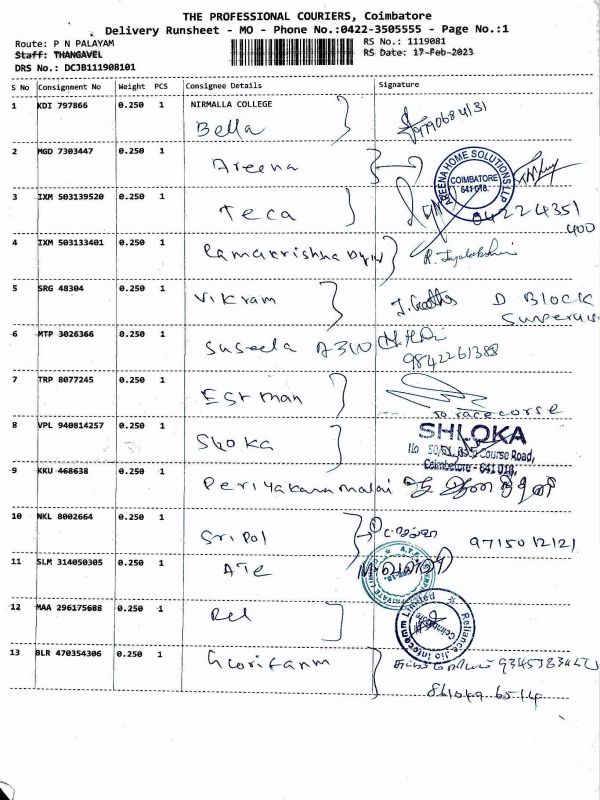 THE PROFESSIONAL COURIERS, Coimbatore
Delivery Runsheet - MO - Phone No.:0422-3505555 - Page No.:1
Route: P N PALAYAM
RS No.: 1119081
Staff: THANGAVEL
RS Date: 17-Feb-2023
DRS No.: DCJB111908101
S No Consignment No Weight PCS Consignee Details Signature
1 KDI 797866 0.250 1 NIRMALLA COLLEGE
Bella
2 MGD 7303447 0.250 1 Areena
AREENA HOME SOLUTIONS LLP
COIMBATORE
641 018.
3 IXM 503139520 0.250 1 Teca
04224351
400
4 IXM 503133401 0.250 1 Ramakrishna
5 SRG 48304 0.250 1 Vikram
D BLOCK
6 MTP 3026366 0.250 1 Suseela A310
9842261388
7 TRP 8077245 0.250 1 Estman
racecorse
8 VPL 940814257 0.250 1 Sloka
SHLOKA
Course Road,
Coimbatore - 641 018.
9 KKU 468638 0.250 1 Periyakarumalai
10 NKL 8002664 0.250 1 Sripol
9715012121
11 SLM 314050305 0.250 1 ATE
12 MAA 296175688 0.250 1 Rel
Reliance Jio Infocomm Limited
Coimbatore
13 BLR 470354306 0.250 1